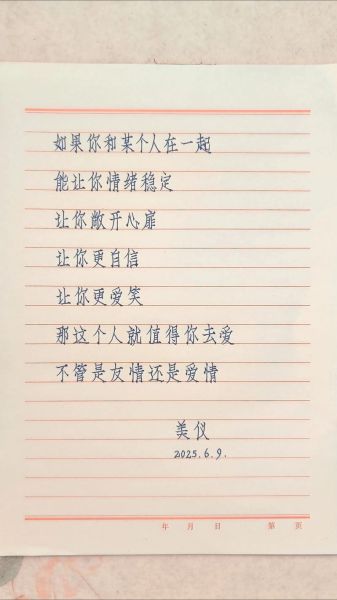 如果你和某个人在一起
能让你情绪稳定
让你敞开心扉
让你更自信
让你更爱笑
那这个人就值得你去爱
不管是友情还是爱情
美仪
2025.6.9.
年 月 日 第 页